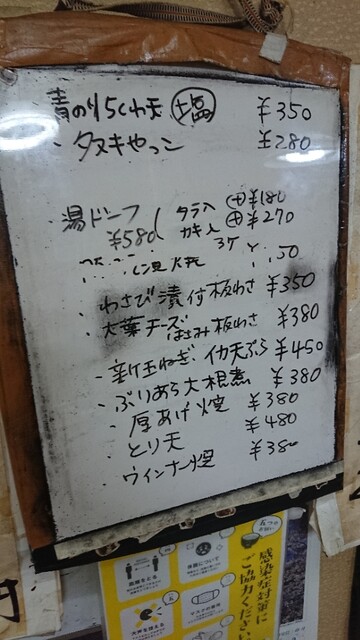 青のりちくわ天 塩 ¥350
・タヌキやっこ ¥280
湯ドーフ ¥580
タラ入 ⊕¥180
カキ入 ⊕¥270
3ケ
焼 50
・わさび漬付板わさ ¥350
・大葉チーズはさみ板わさ ¥380
・新玉ねぎ イカ天ぷら ¥450
・ぶりあら大根煮 ¥380
・厚あげ焼 ¥380
・とり天 ¥480
・ウインナー焼 ¥380
感染症対策に
ご協力ください